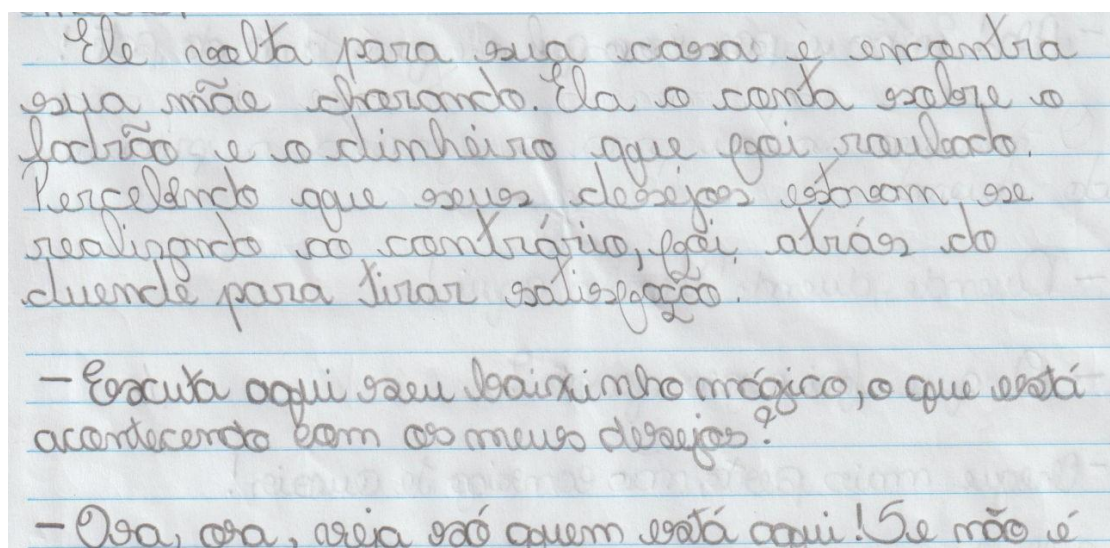 Ele volta para sua casa e encontra
sua mãe chorando. Ela o conta sobre o
ladrão e o dinheiro que foi roubado.
Percebendo que seus desejos estavam se
realizando ao contrário, foi atrás do
duende para tirar satisfação.
- Escuta aqui seu baixinho mágico, o que está
acontecendo com os meus desejos?
- Ora, ora, veja só quem está aqui! Se não é